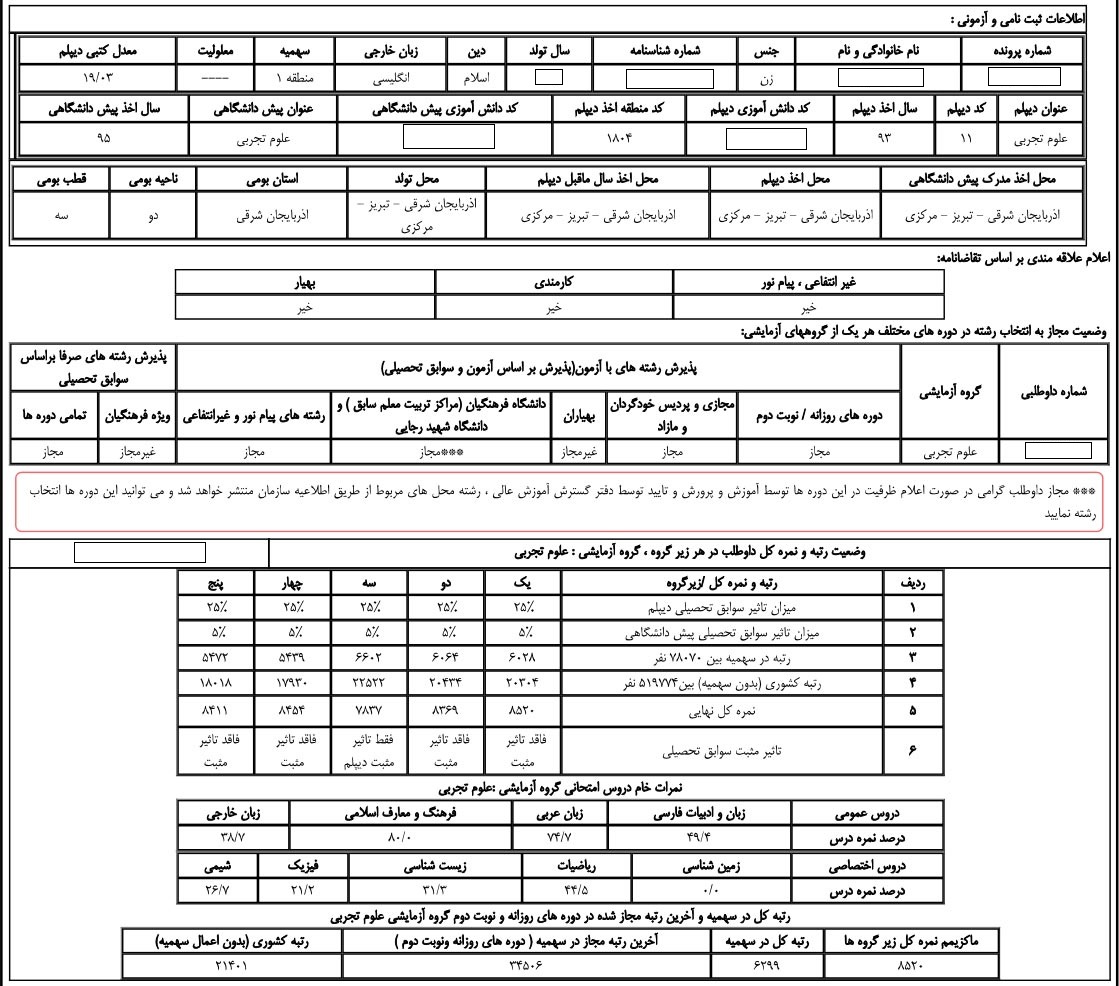 اطلاعات ثبت نامی و آزمونی :
شماره پرونده نام خانوادگی و نام جنس شماره شناسنامه سال تولد دین زبان خارجی سهمیه معلولیت معدل کتبی دیپلم
زن اسلام انگلیسی منطقه ۱ ---- ۱۹/۰۳
عنوان دیپلم کد دیپلم سال اخذ دیپلم کد دانش آموزی دیپلم کد منطقه اخذ دیپلم کد دانش آموزی پیش دانشگاهی عنوان پیش دانشگاهی سال اخذ پیش دانشگاهی
علوم تجربی ۱۱ ۹۳ ۱۸۰۴ علوم تجربی ۹۵
محل اخذ مدرک پیش دانشگاهی محل اخذ دیپلم محل اخذ سال ماقبل دیپلم محل تولد استان بومی ناحیه بومی قطب بومی
اذربایجان شرقی - تبریز - مرکزی اذربایجان شرقی - تبریز - مرکزی اذربایجان شرقی - تبریز - مرکزی اذربایجان شرقی - تبریز - اذربایجان شرقی دو سه
مرکزی
اعلام علاقه مندی بر اساس تقاضانامه:
غیر انتفاعی ، پیام نور کارمندی بهیار
خیر خیر خیر
وضعیت مجاز به انتخاب رشته در دوره های مختلف هر یک از گروههای آزمایشی:
شماره داوطلبی گروه آزمایشی پذیرش رشته های با آزمون(پذیرش بر اساس آزمون و سوابق تحصیلی) پذیرش رشته های صرفا براساس
سوابق تحصیلی
دوره های روزانه / نوبت دوم مجازی و پردیس خودگردان بهیاران دانشگاه فرهنگیان (مراکز تربیت معلم سابق ) و رشته های پیام نور و غیرانتفاعی ویژه فرهنگیان تمامی دوره ها
و مازاد دانشگاه شهید رجایی
علوم تجربی مجاز مجاز غیرمجاز ***مجاز مجاز غیرمجاز مجاز
*** مجاز داوطلب گرامی در صورت اعلام ظرفیت در این دوره ها توسط آموزش و پرورش و تایید توسط دفتر گسترش آموزش عالی ، رشته محل های مربوط از طریق اطلاعیه سازمان منتشر خواهد شد و می توانید این دوره ها انتخاب
رشته نمایید
وضعیت رتبه و نمره کل داوطلب در هر زیر گروه ، گروه آزمایشی : علوم تجربی
ردیف رتبه و نمره کل /زیرگروه یک دو سه چهار پنج
۱ میزان تاثیر سوابق تحصیلی دیپلم ۲۵٪ ۲۵٪ ۲۵٪ ۲۵٪ ۲۵٪
۲ میزان تاثیر سوابق تحصیلی پیش دانشگاهی ۵٪ ۵٪ ۵٪ ۵٪ ۵٪
۳ رتبه در سهمیه بین ۷۸۰۷۰ نفر ۶۰۲۸ ۶۰۶۴ ۶۶۰۲ ۵۴۳۹ ۵۴۷۲
۴ رتبه کشوری (بدون سهمیه) بین ۵۱۹۷۷۴ نفر ۲۰۳۰۴ ۲۰۴۳۴ ۲۲۵۲۲ ۱۷۹۳۰ ۱۸۰۱۸
۵ نمره کل نهایی ۸۵۲۰ ۸۳۶۹ ۷۸۳۷ ۸۴۵۴ ۸۴۱۱
۶ تاثیر مثبت سوابق تحصیلی فاقد تاثیر فاقد تاثیر فقط تاثیر فاقد تاثیر فاقد تاثیر
مثبت مثبت مثبت دیپلم مثبت مثبت
نمرات خام دروس امتحانی گروه آزمایشی :علوم تجربی
دروس عمومی زبان و ادبیات فارسی زبان عربی فرهنگ و معارف اسلامی زبان خارجی
درصد نمره درس ۴۹/۴ ۷۴/۷ ۸۰/۰ ۳۸/۷
دروس اختصاصی زمین شناسی ریاضیات زیست شناسی فیزیک شیمی
درصد نمره درس ۰/۰ ۴۴/۵ ۳۱/۳ ۲۱/۲ ۲۶/۷
رتبه کل در سهمیه و آخرین رتبه مجاز شده در دوره های روزانه و نوبت دوم گروه آزمایشی علوم تجربی
ماکزیمم نمره کل زیر گروه ها رتبه کل در سهمیه آخرین رتبه مجاز در سهمیه ( دوره های روزانه ونوبت دوم ) رتبه کشوری (بدون اعمال سهمیه)
۸۵۲۰ ۶۲۹۹ ۳۴۵۰۶ ۲۱۴۰۱